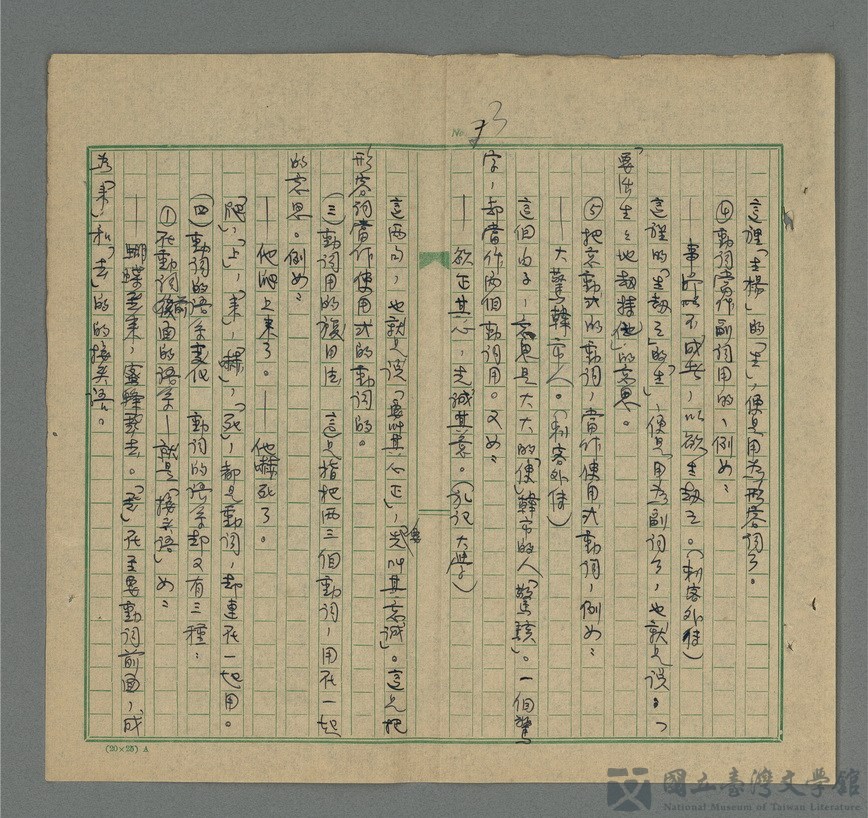 No. 93
這裡「生楊」的「生」,便是用為形容詞了。
④動詞當作副詞用的,例如:
——事所以不成者,以欲生劫之。(刺客外傳)
這裡的「生劫之」的「生」,便是用為副詞了,也就是說,「
要活生生地劫持他」的意思。
⑤把意動式的動詞,當作使用式動詞,例如:
——大驚韓市人。(刺客外傳)
這個句子,意思是大大的「使」韓市的人「驚駭」。一個驚
字,却當作兩個動詞用。又如:
——欲正其心,先誠其意。(礼記大學)
這兩句,也就是說「要叫其心正」,先「要叫其意誠」。這是把
形容詞當作使用式的動詞的。
(三)動詞用的複用法 這是指把兩三個動詞,用在一起
的意思。例如:
——他爬上來了。——他嚇死了。
「爬」,「上」,「來」,「嚇」,「死」,都是動詞,却連在一起用。
(四)動詞的語系變化 動詞的語系却又有三種:
①在動詞前面的語系—就是「接头語」如:
——蝴蝶飛來,蜜蜂飛去。「飛」在主要動詞前面,成
為「來」和「去」的的接头語。
(20×25) A
國立臺灣文學館
National Museum of Taiwan Literature